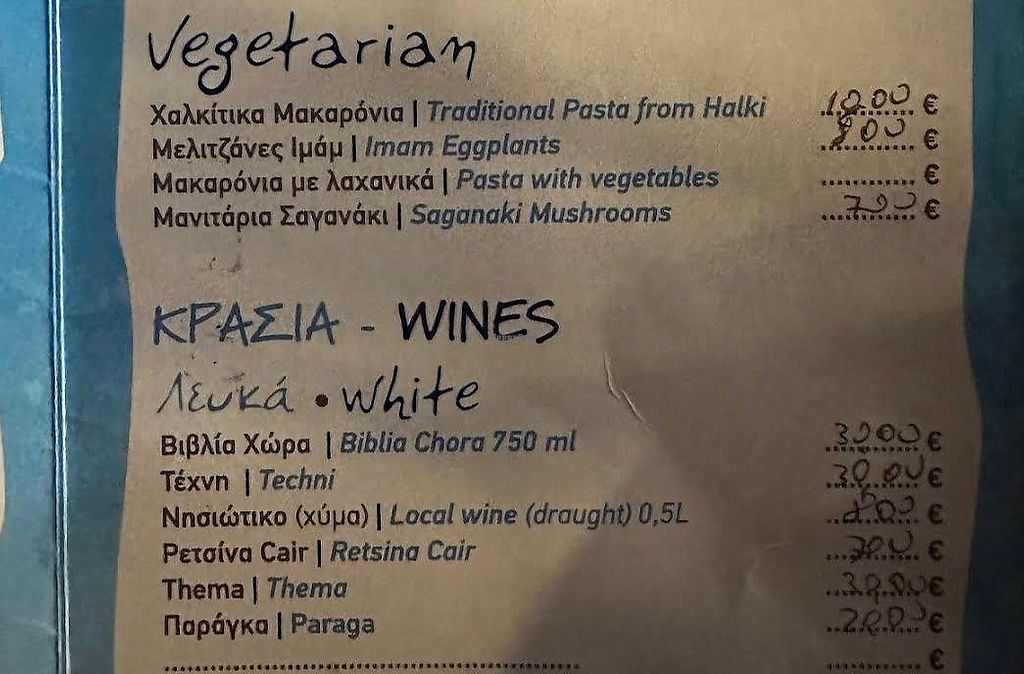 Vegetarian
Χαλκίτικα Μακαρόνια | Traditional Pasta from Halki 10.00 €
Μελιτζάνες Ιμάμ | Imam Eggplants €
Μακαρόνια με λαχανικά | Pasta with vegetables .......... €
Μανιτάρια Σαγανάκι | Saganaki Mushrooms 700 €
ΚΡΑΣΙΑ - WINES
Λευκά • White
Βιβλία Χώρα | Biblia Chora 750 ml 3000 €
Τέχνη | Techni 30.00 €
Νησιώτικο (χύμα) | Local wine (draught) 0,5L €
Ρετσίνα Cair | Retsina Cair 700 €
Thema | Thema 30.00 €
Παράγκα | Paraga 2000 €
.................................................. .......... €